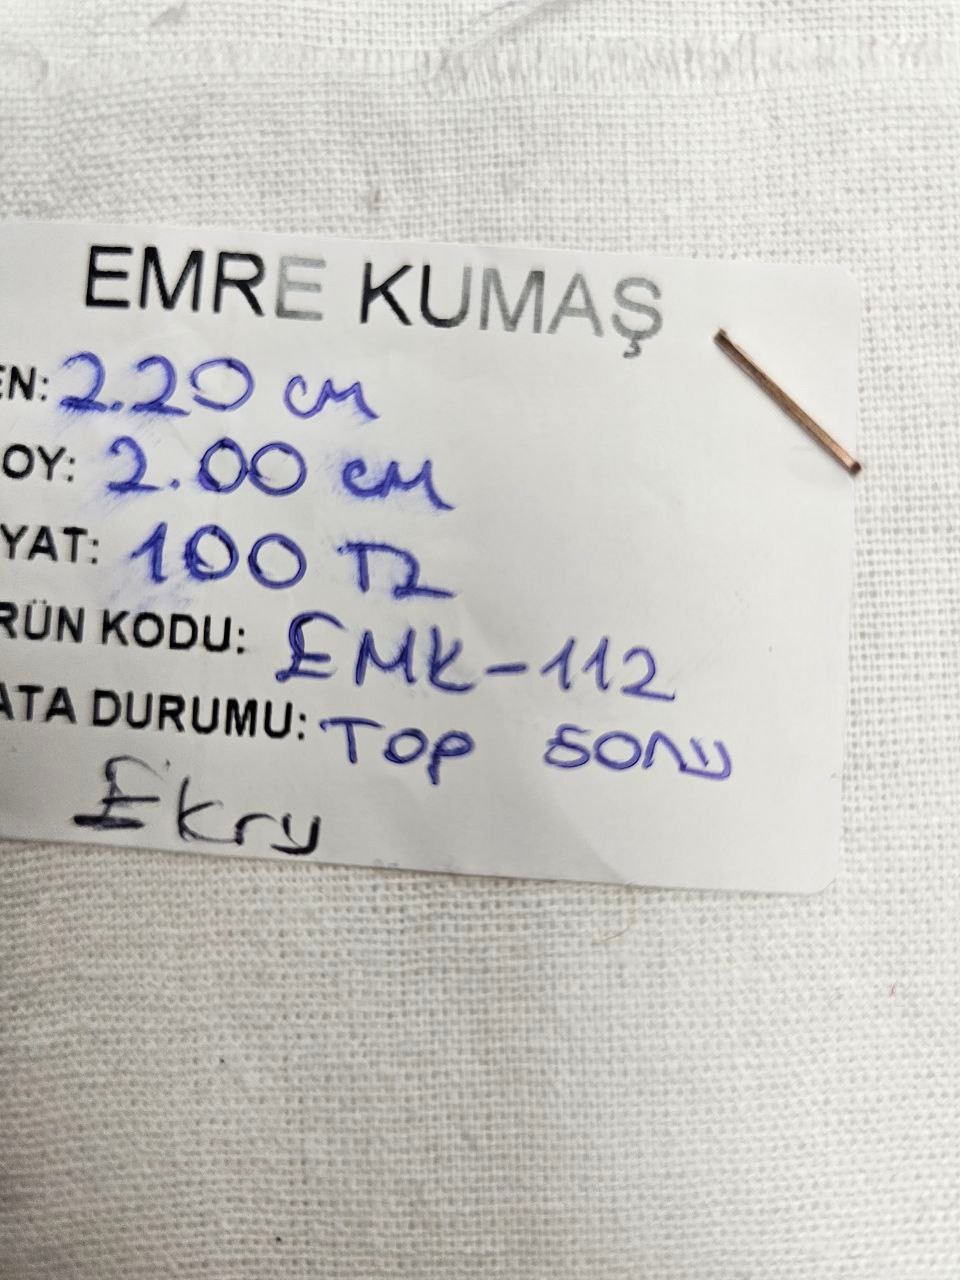 EMRE KUMAŞ
EN: 2.20 cm
OY: 2.00 cm
YAT: 100 TL
RÜN KODU: EMK-112
ATA DURUMU: TOP SONU
Ekru